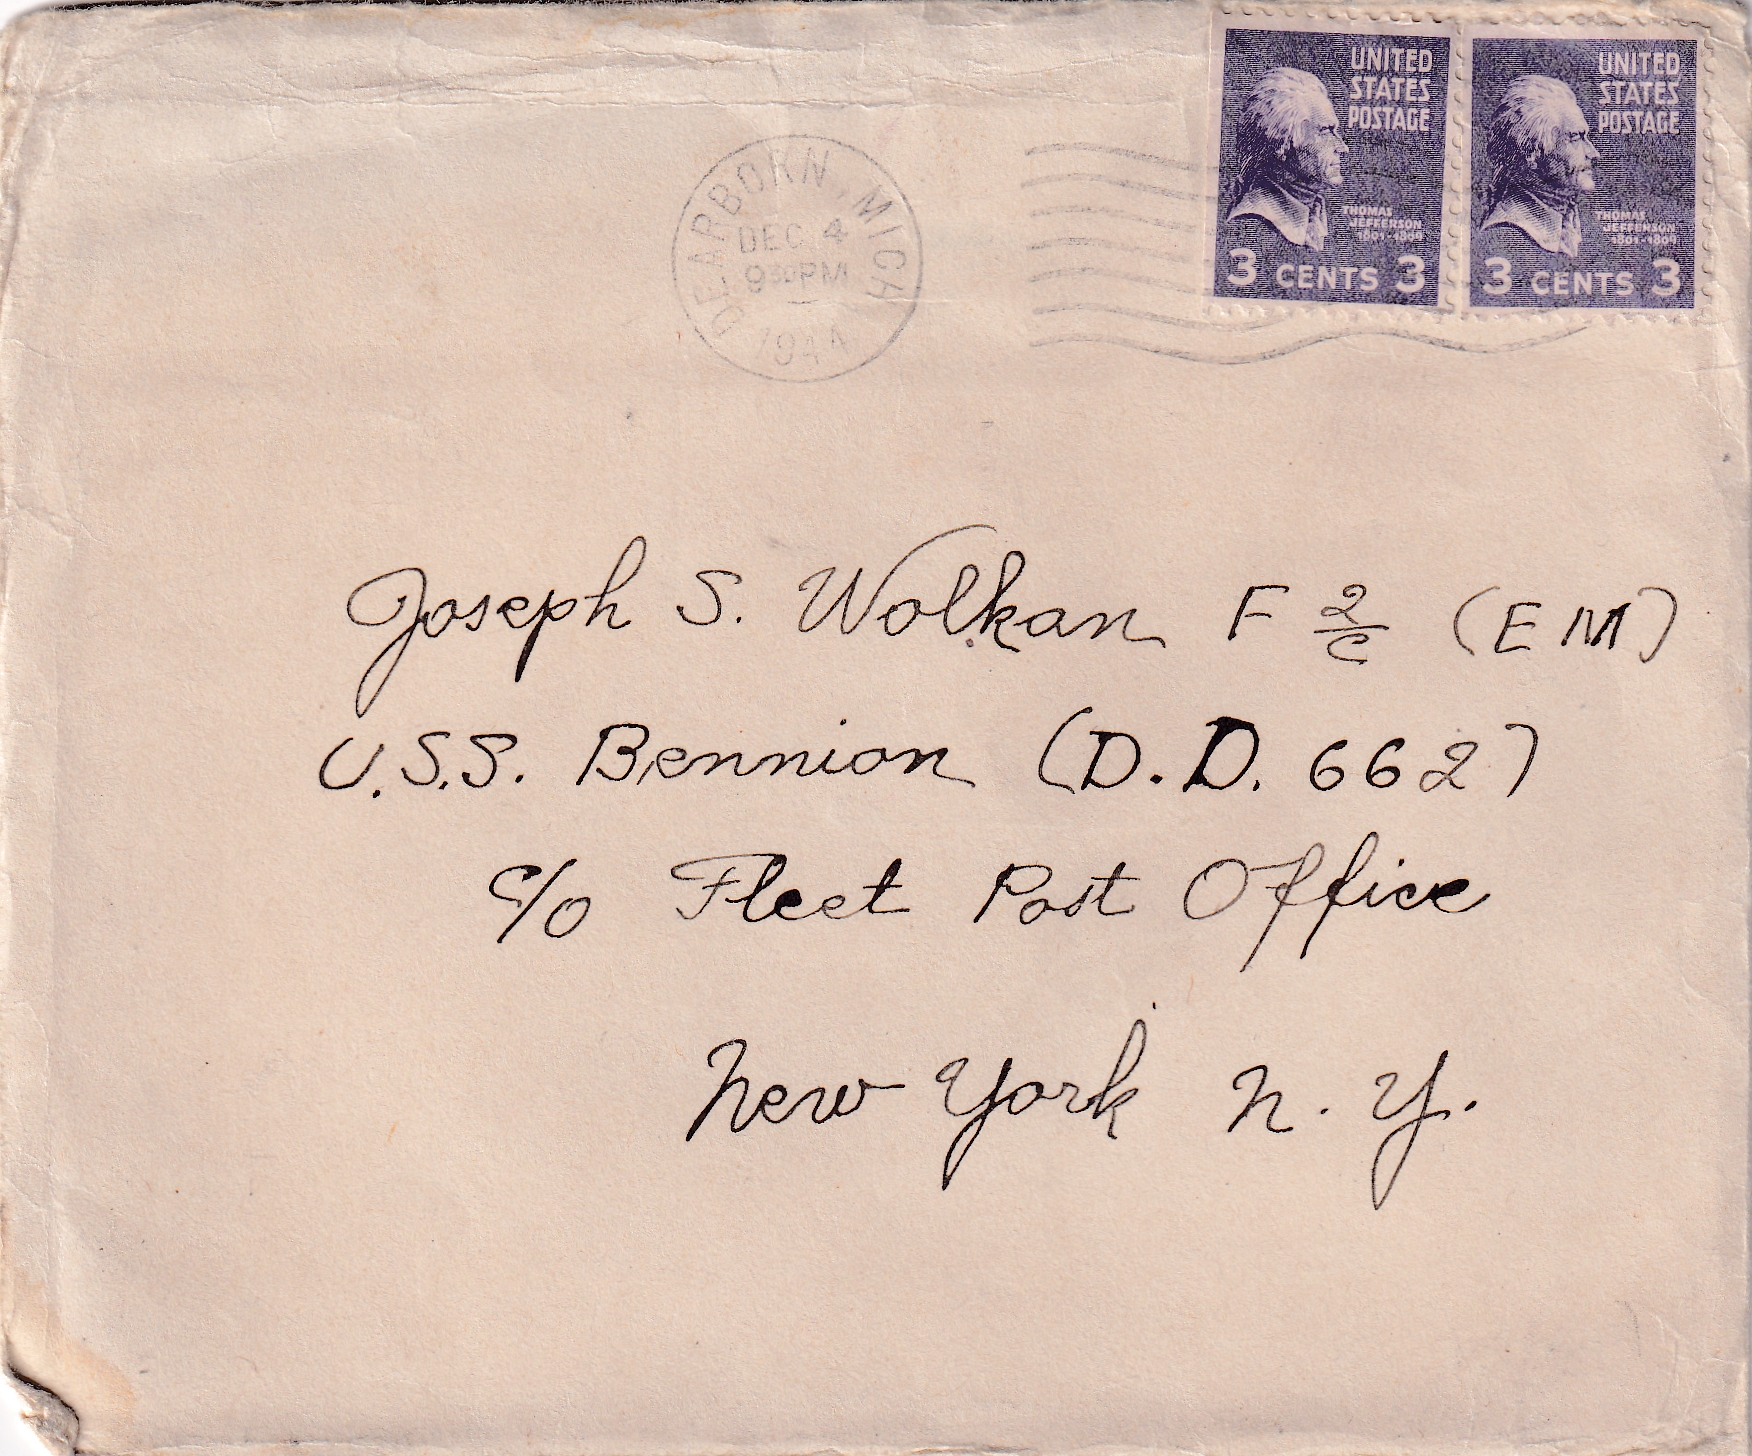 UNITED
STATES
POSTAGE
THOMAS
JEFFERSON
1801-1809
3 CENTS 3
UNITED
STATES
POSTAGE
THOMAS
JEFFERSON
1801-1809
3 CENTS 3
DEARBORN, MICH
DEC 4
930PM
1944
Joseph S. Wolkan F 2/c (EM)
U.S.S. Bennion (D.D. 662)
c/o Fleet Post Office
New York N.Y.